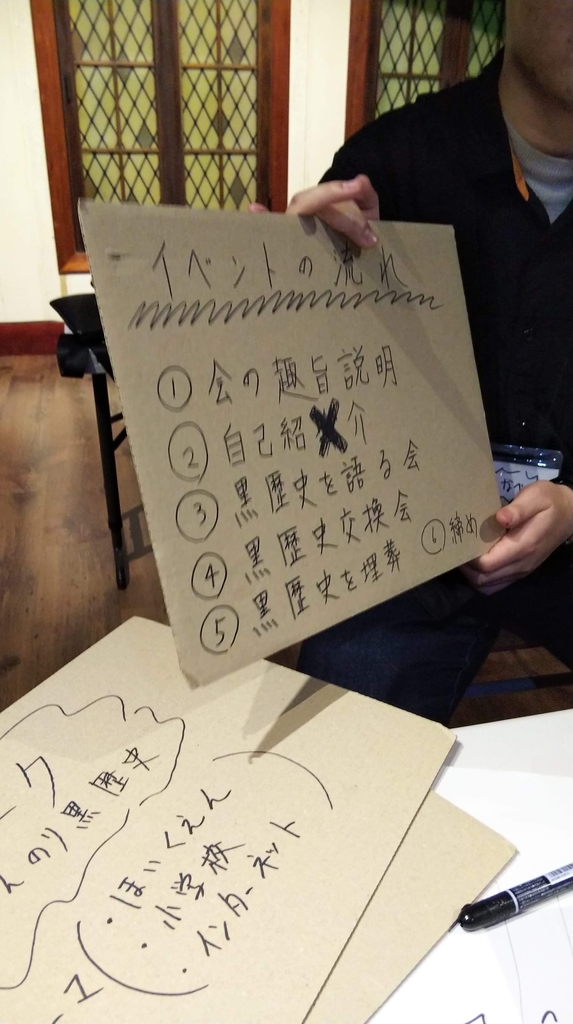 イベントの流れ
① 会の趣旨説明
② 自己紹介
③ 黒歴史を語る会
④ 黒歴史交換会
⑤ 黒歴史を埋葬
⑥ 締め
ク
んのり黒歴史
・ほいくえん
・小学校
・インターネット